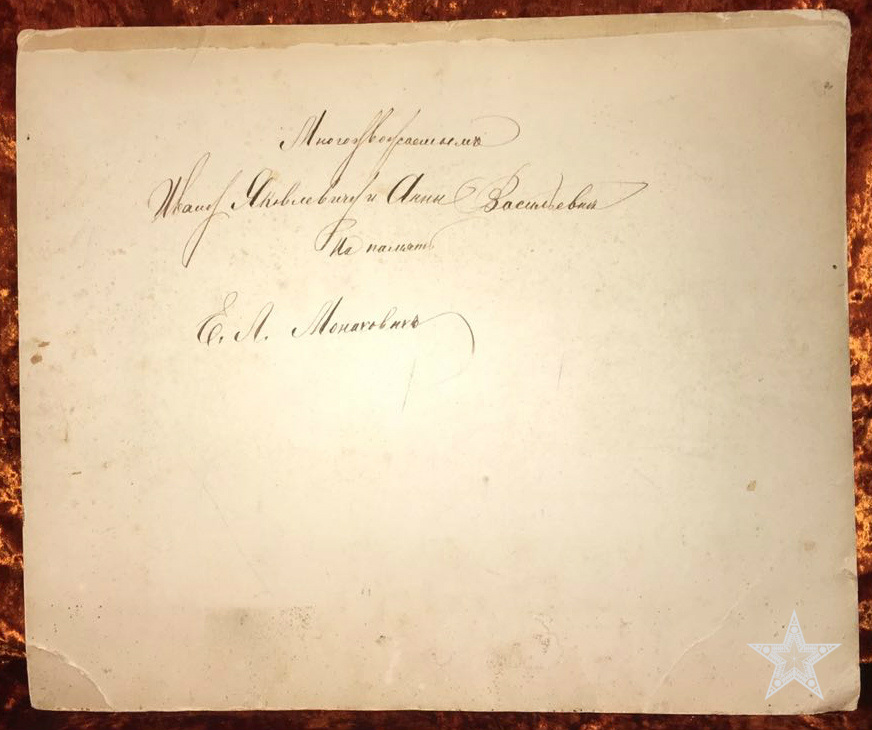 Многоуважаемымъ
Ивану Яковлевичу и Анне Васильевне
На память
Е. Л. Монаховичъ